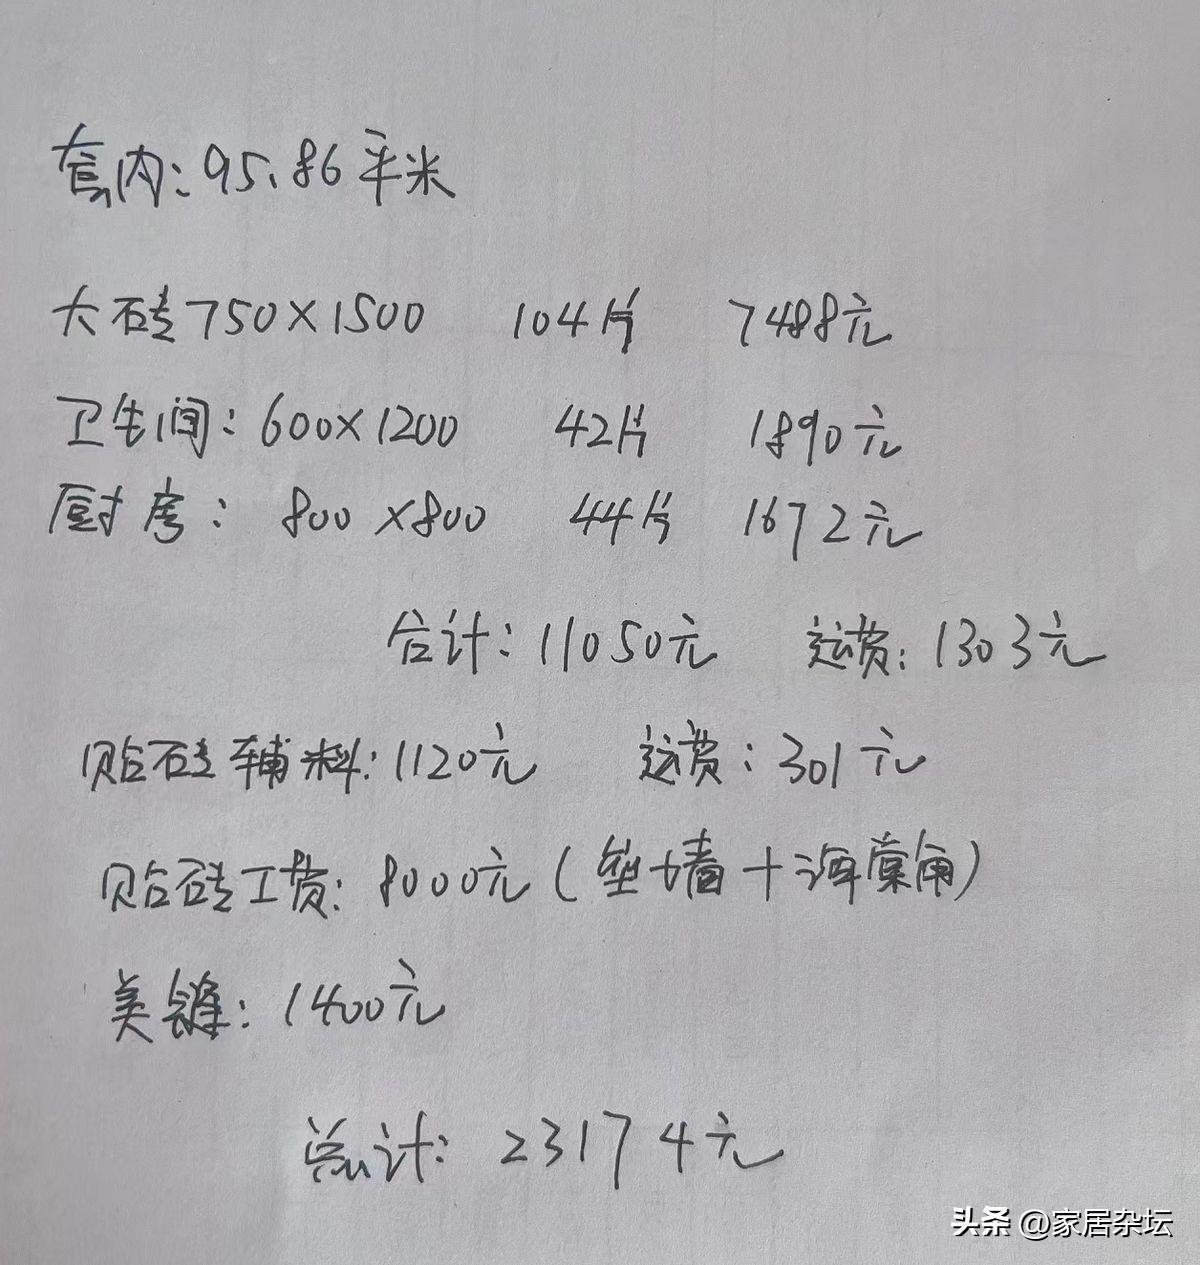 套内:95.86平米
大砖750×1500 104片 7488元
卫生间:600×1200 42片 1890元
厨房:800×800 44片 1672元
合计:11050元 运费:1303元
贴砖辅料:1120元 运费:301元
贴砖工费:8000元(垫墙+海棠角)
美缝:1400元
总计:23174元
头条 @家居杂坛